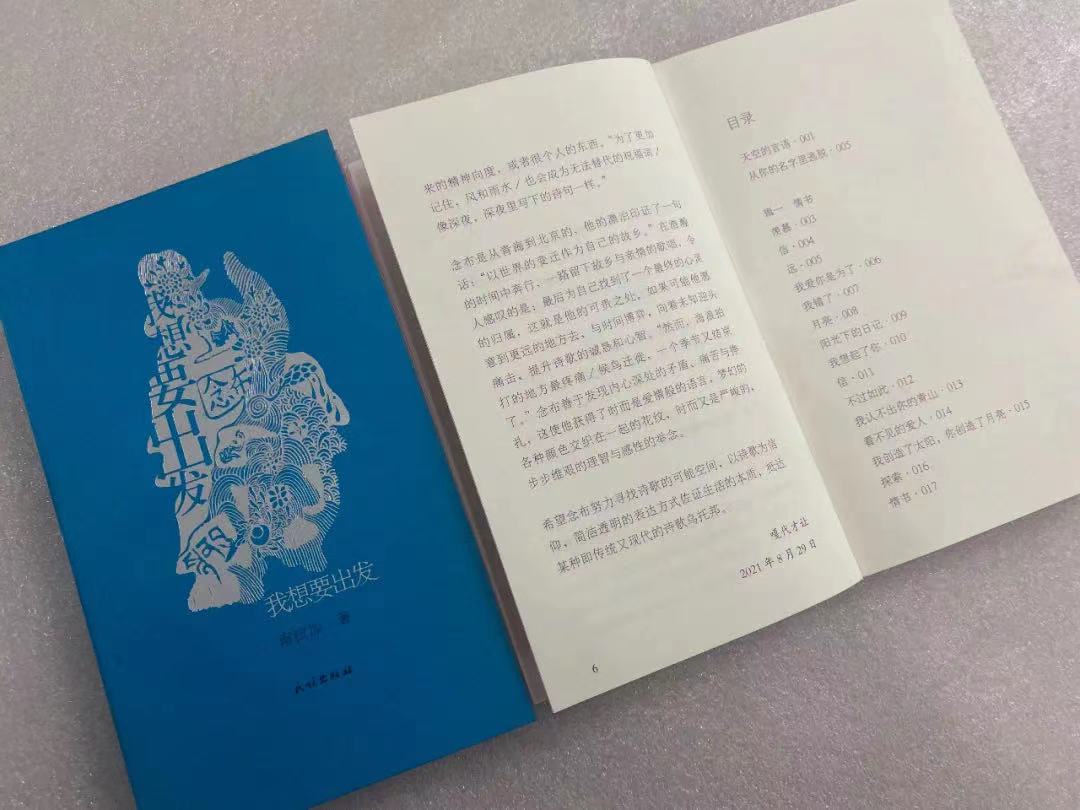 我想要出发
念布
我想要出发
著
民族出版社
来的精神向度，或者很个人的东西。“为了更加
记住，风和雨水／也会成为无法替代的祝福语／
像深夜，深夜里写下的诗句一样。”
念布是从青海到北京的，他的漂泊印证了一句
话：“以世界的变迁作为自己的故乡。”在酒酿
的时间中奔行，一路留下故乡与亲情的歌唱，令
人感叹的是：最后为自己找到了一个最终的心灵
的归属，这就是他的可贵之处。如果可能他愿
意到更远的地方去，与时间博弈，向着未知迎头
痛击，提升诗歌的诚恳和心智。“然而，海浪拍
打的地方最疼痛／候鸟迁徙，一个季节又结束
了。”念布善于发现内心深处的矛盾、痛苦与挣
扎，这使他获得了时而是爱情般的语言，梦幻的
各种颜色交织在一起的花纹，时而又是严峻的，
步步维艰的理智与感性的举念。
希望念布努力寻找诗歌的可能空间，以诗歌为信
仰，简洁透明的表达方式佐证生活的本质，抵达
某种即传统又现代的诗歌乌托邦。
嘎代才让
2021 年 8 月 29 日
6
目录
天空的言语·001
从你的名字里逃脱·005
辑一 情书
羡慕·003
信·004
远·005
我爱你是为了·006
我输了·007
月亮·008
阳光下的日记·009
我想起了你·010
信·011
不过如此·012
我认不出你的青山·013
看不见的爱人·014
我创造了太阳，你创造了月亮·015
探索·016
情书·017